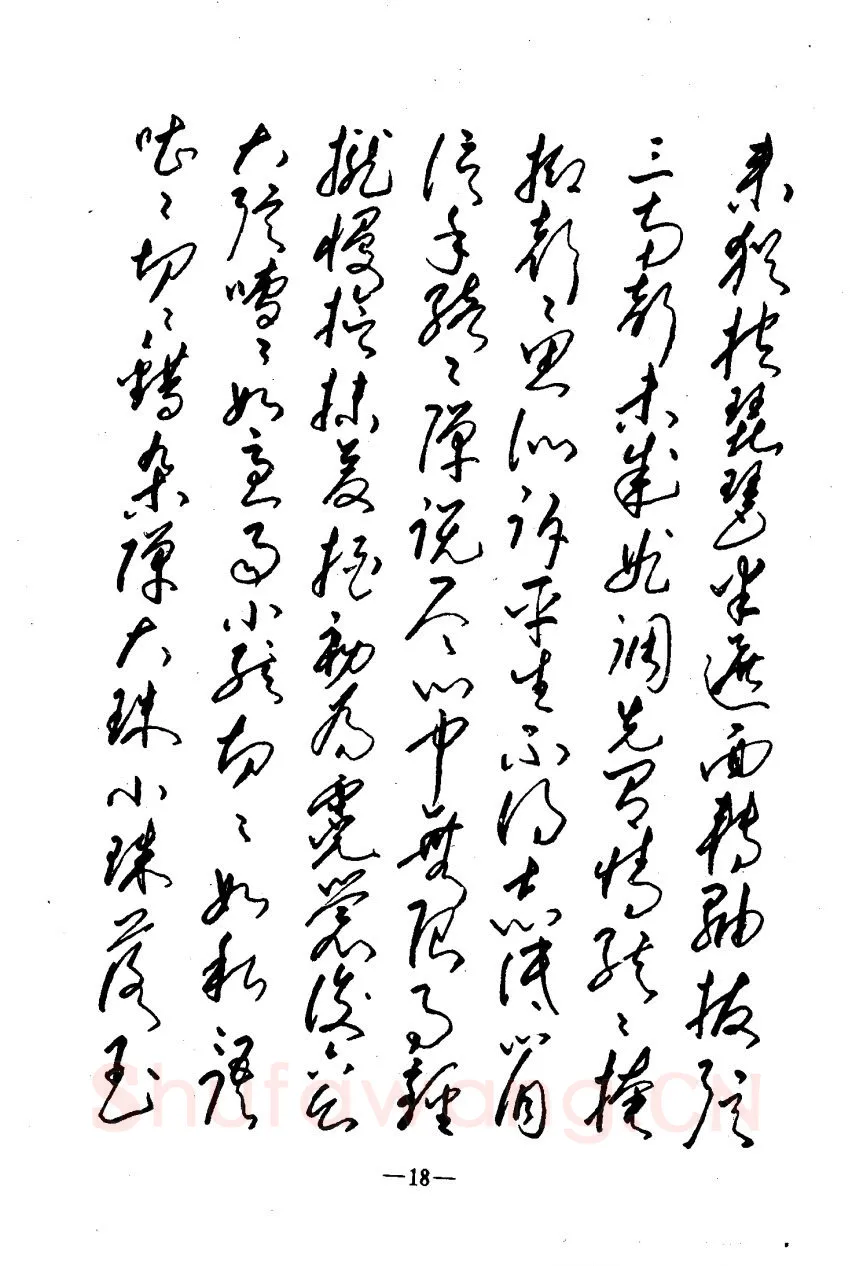 来犹抱琵琶半遮面轉軸拨弦
三两声未成曲调先有情弦〻掩
抑声〻思似诉平生不得志低眉
信手續〻弹说尽心中無限事輕
攏慢捻抹复挑初为霓裳後六幺
大弦嘈〻如急雨小弦切〻如私語
嘈〻切〻錯杂弹大珠小珠落玉
—18—
Shufawang.CN